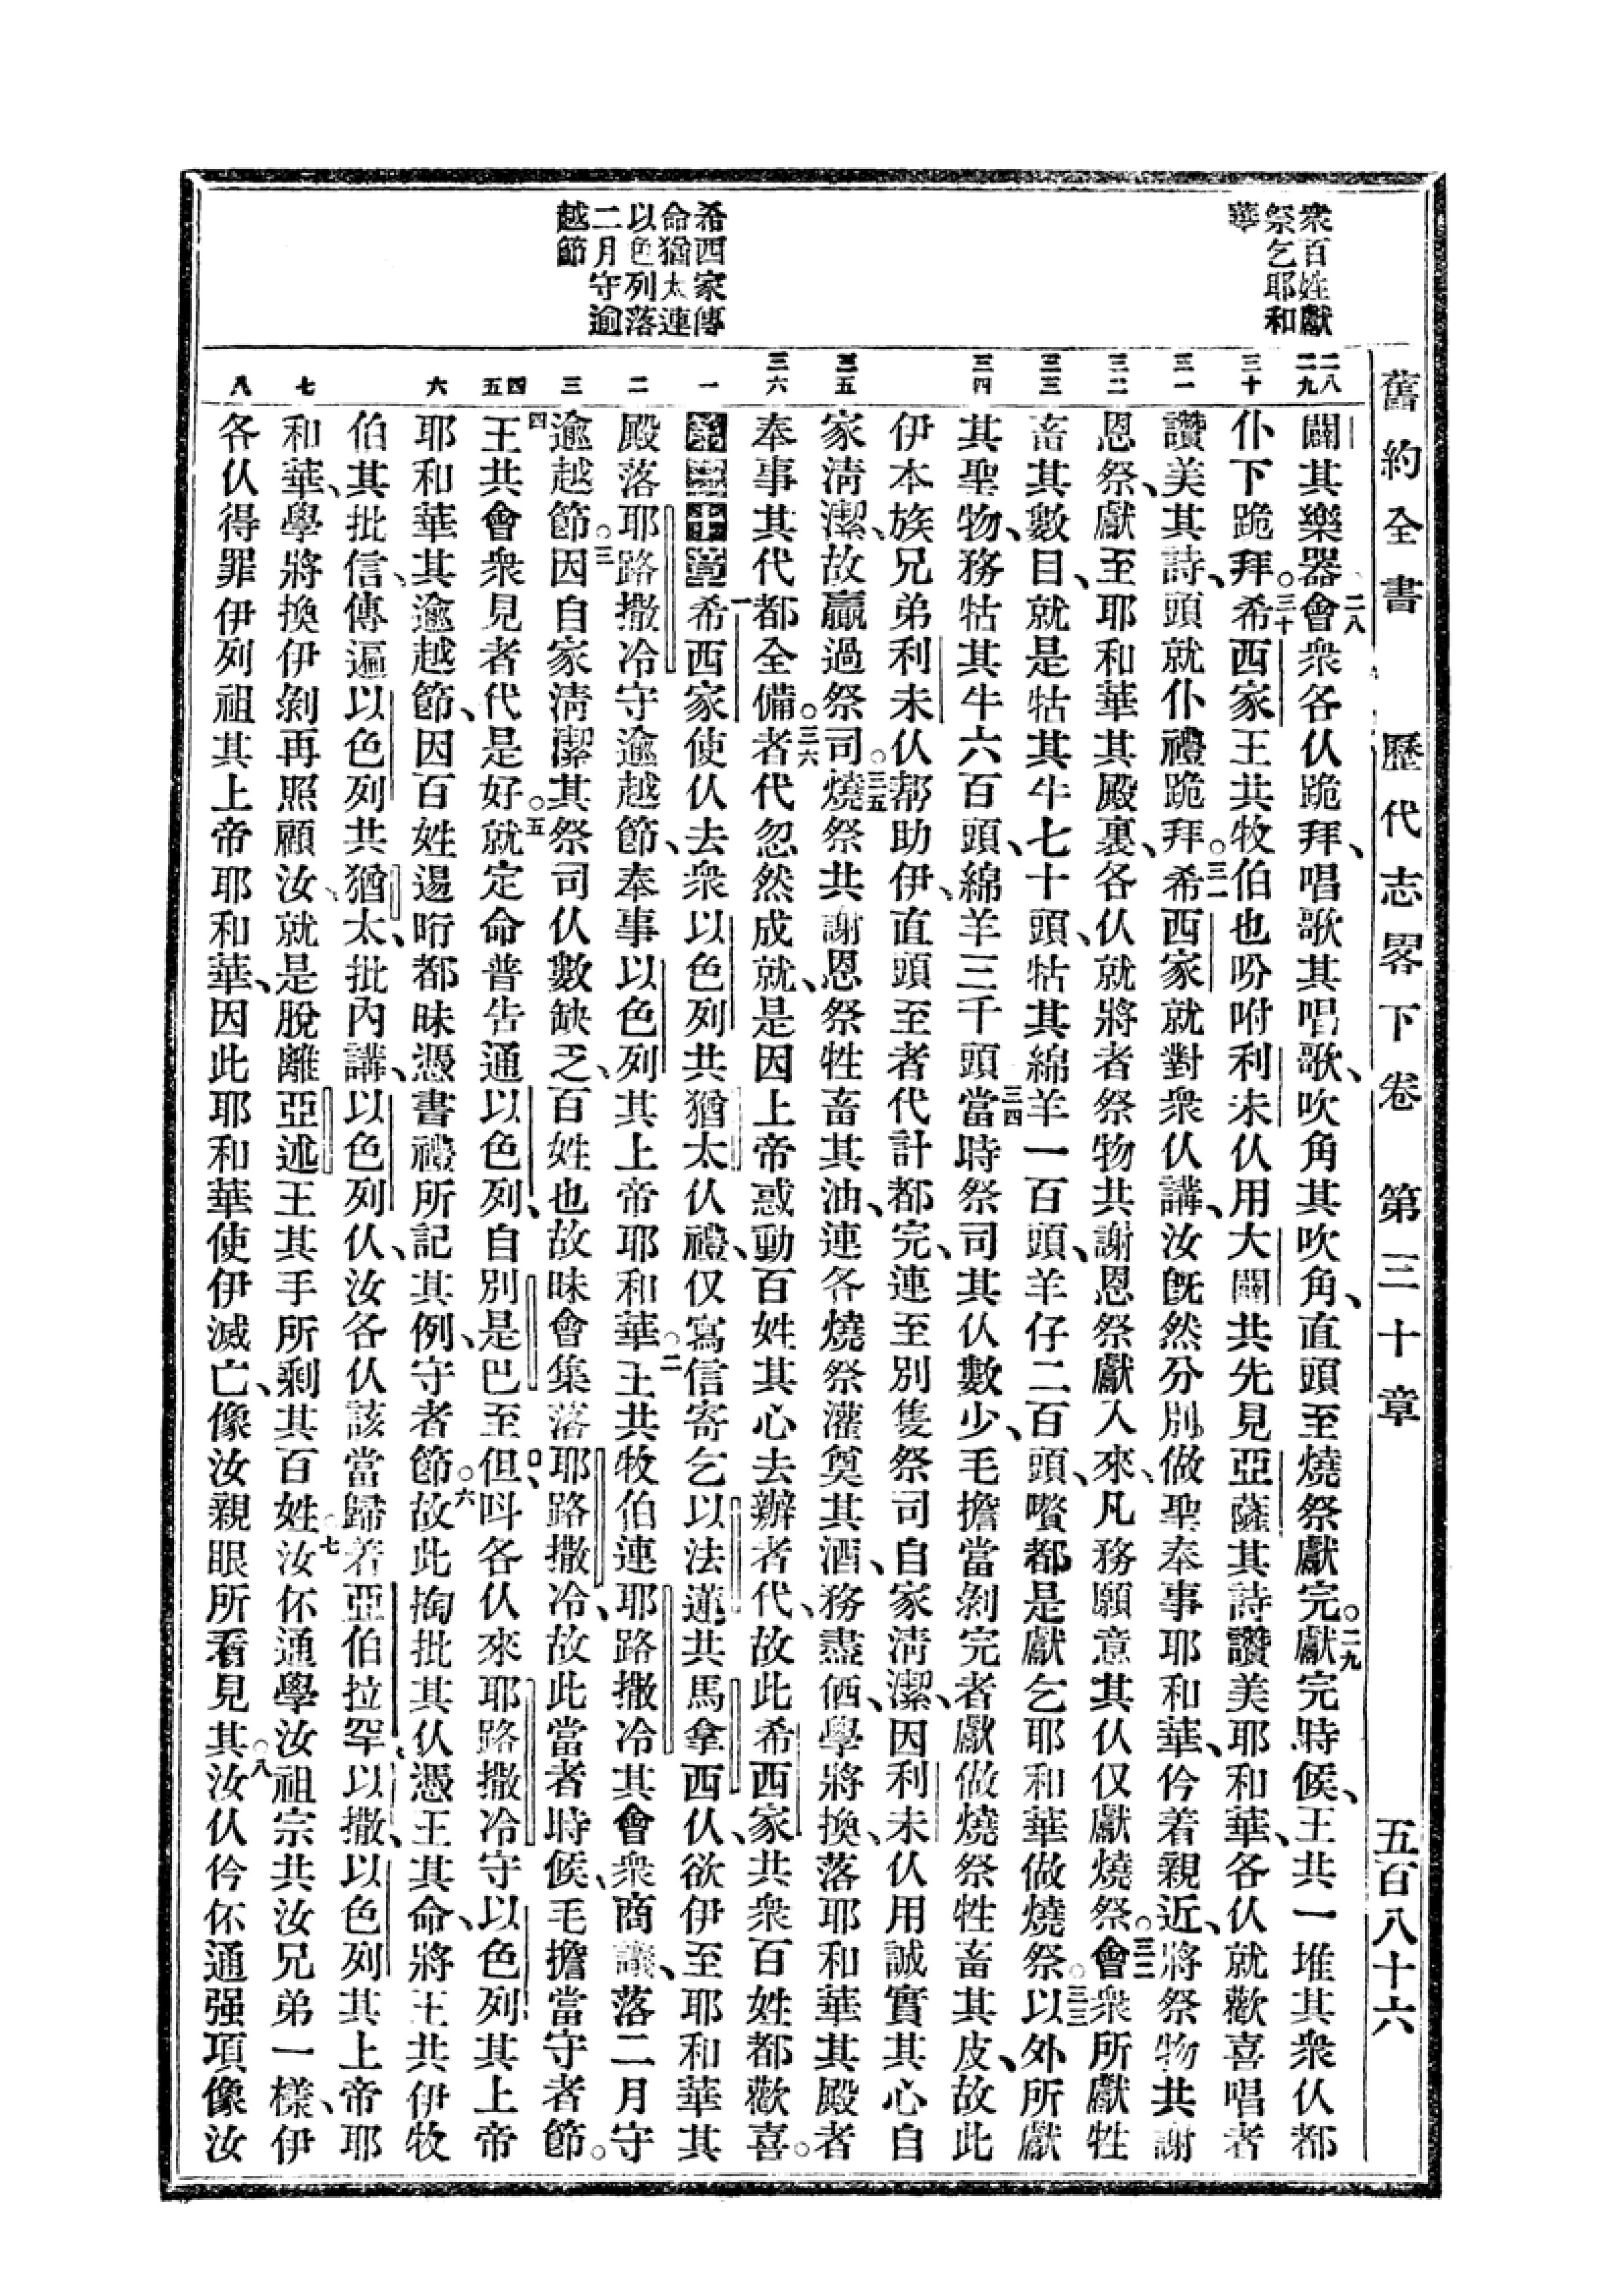 舊約全書　歷代志畧下卷　第三十章　五百八十六
衆百姓獻
祭乞耶和
華
希西家傳
命猶太連
以色列落
二月守逾
越節
二八
二九
三十
三一
三二
三三
三四
三五
三六
一
二
三
四
五
六
七
八
闢其樂器二八會衆各仈跪拜、唱歌其唱歌、吹角其吹角、直頭至燒祭獻完。二九獻完時候、王共一堆其衆仈都
仆下跪拜。三十希西家王共牧伯也吩咐利未仈用大闢共先見亞薩其詩讚美耶和華、各仈就歡喜唱者
讚美其詩、頭就仆禮跪拜。三一希西家就對衆仈講、汝旣然分別做聖奉事耶和華、仱着親近、將祭物共謝
恩祭、獻至耶和華其殿裏、各仈就將者祭物共謝恩祭獻入來、凡務願意其仈仅獻燒祭。三二會衆所獻牲
畜其數目、就是牯其牛七十頭、牯其綿羊一百頭、羊仔二百頭、嚽都是獻乞耶和華做燒祭。三三以外所獻
其聖物、務牯其牛六百頭、綿羊三千頭三四當時祭司其仈數少、毛擔當剝完者獻做燒祭牲畜其皮、故此
伊本族兄弟利未仈帮助伊、直頭至者代計都完、連至別隻祭司自家清潔、因利未仈用誠實其心自
家清潔、故贏過祭司。三五燒祭共謝恩祭牲畜其油、連各燒祭灌奠其酒、務盡価、學將換、落耶和華其殿者
奉事其代都全備。三六者代忽然成就、是因上帝惑動百姓其心去辦者代、故此希西家共衆百姓都歡喜。
第三十章一希西家使仈去衆以色列共猶太仈禮、仅寫信寄乞以法蓮共馬拿西仈、欲伊至耶和華其
殿落耶路撒冷守逾越節、奉事以色列其上帝耶和華。二王共牧伯連耶路撒冷其會衆商議、落二月守
逾越節。三因自家清潔其祭司仈數缺乏、百姓也故昧會集落耶路撒冷、故此當者時候、毛擔當守者節。
四王共會衆見者代是好。五就定命普告通以色列、自別是巴至但、呌各仈來耶路撒冷守以色列其上帝
耶和華其逾越節、因百姓逿昕都昧憑書禮所記其例、守者節。六故此掏批其仈憑王其命、將王共伊牧
伯其批信、傳遍以色列共猶太、批內講、以色列仈、汝各仈該當歸若亞伯拉罕、以撒、以色列其上帝耶
和華、學將換伊剝再照顧汝、就是脫離亞述王其手所剩其百姓七汝伓通學汝祖宗共汝兄弟一樣、伊
各仈得罪伊列祖其上帝耶和華、因此耶和華使伊滅亡、像汝親眼所看見其。八汝仈仱伓通强項像汝